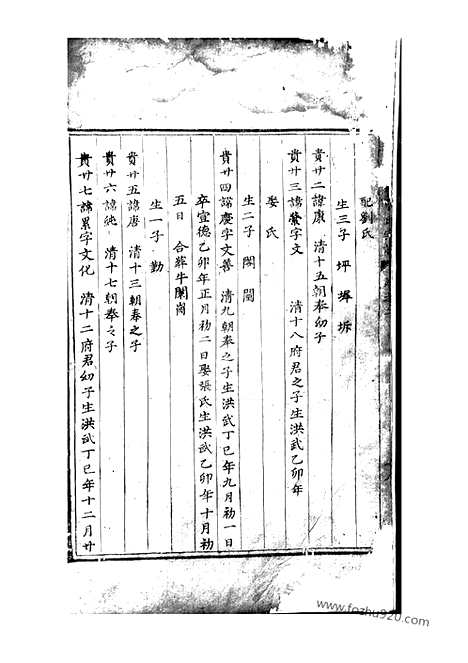 配劉氏
生三子 坪 墀 坼
貴廿二諱康 清十五朝奉幼子
貴廿三諱 字文 清十八府君之子生洪武乙卯年
娶 氏
生二子 閣 閏
貴廿四諱慶字文善 清九朝奉之子生洪武丁巳年九月初一日
卒宣德乙卯年正月初二日娶張氏生洪武乙卯年十月初
五日 合葬牛闌崗
生一子 勤
貴廿五諱唐 清十三朝奉之子
貴廿六諱純 清十七朝奉之子
貴廿七諱累字文化 清十二府君幼子生洪武丁巳年十二月廿
www.fozhu920.com